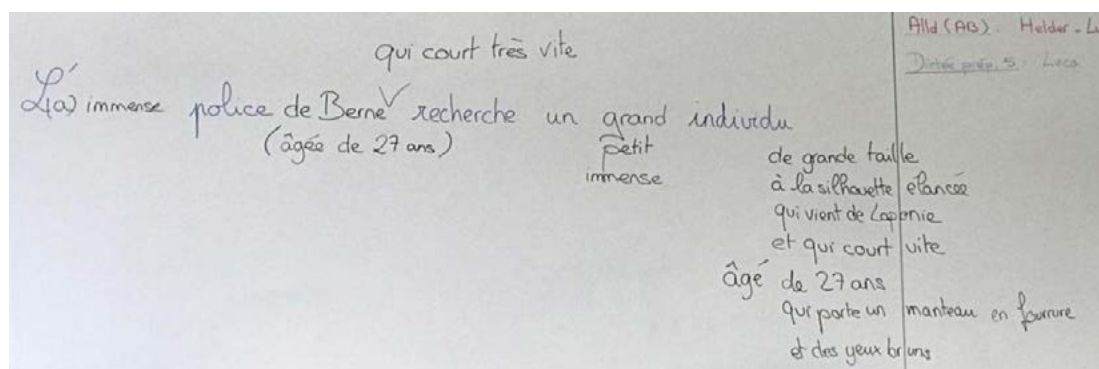 Alld (AB) : Helder - L
qui court très vite
Dictée prép. 5 : Luca
L'(a) immense police de Berne V recherche un grand individu
(âgée de 27 ans) petit de grande taille
immense à la silhouette élancée
qui vient de Laponie
et qui court vite
âgé de 27 ans
qui porte un manteau en fourrure
et des yeux bruns